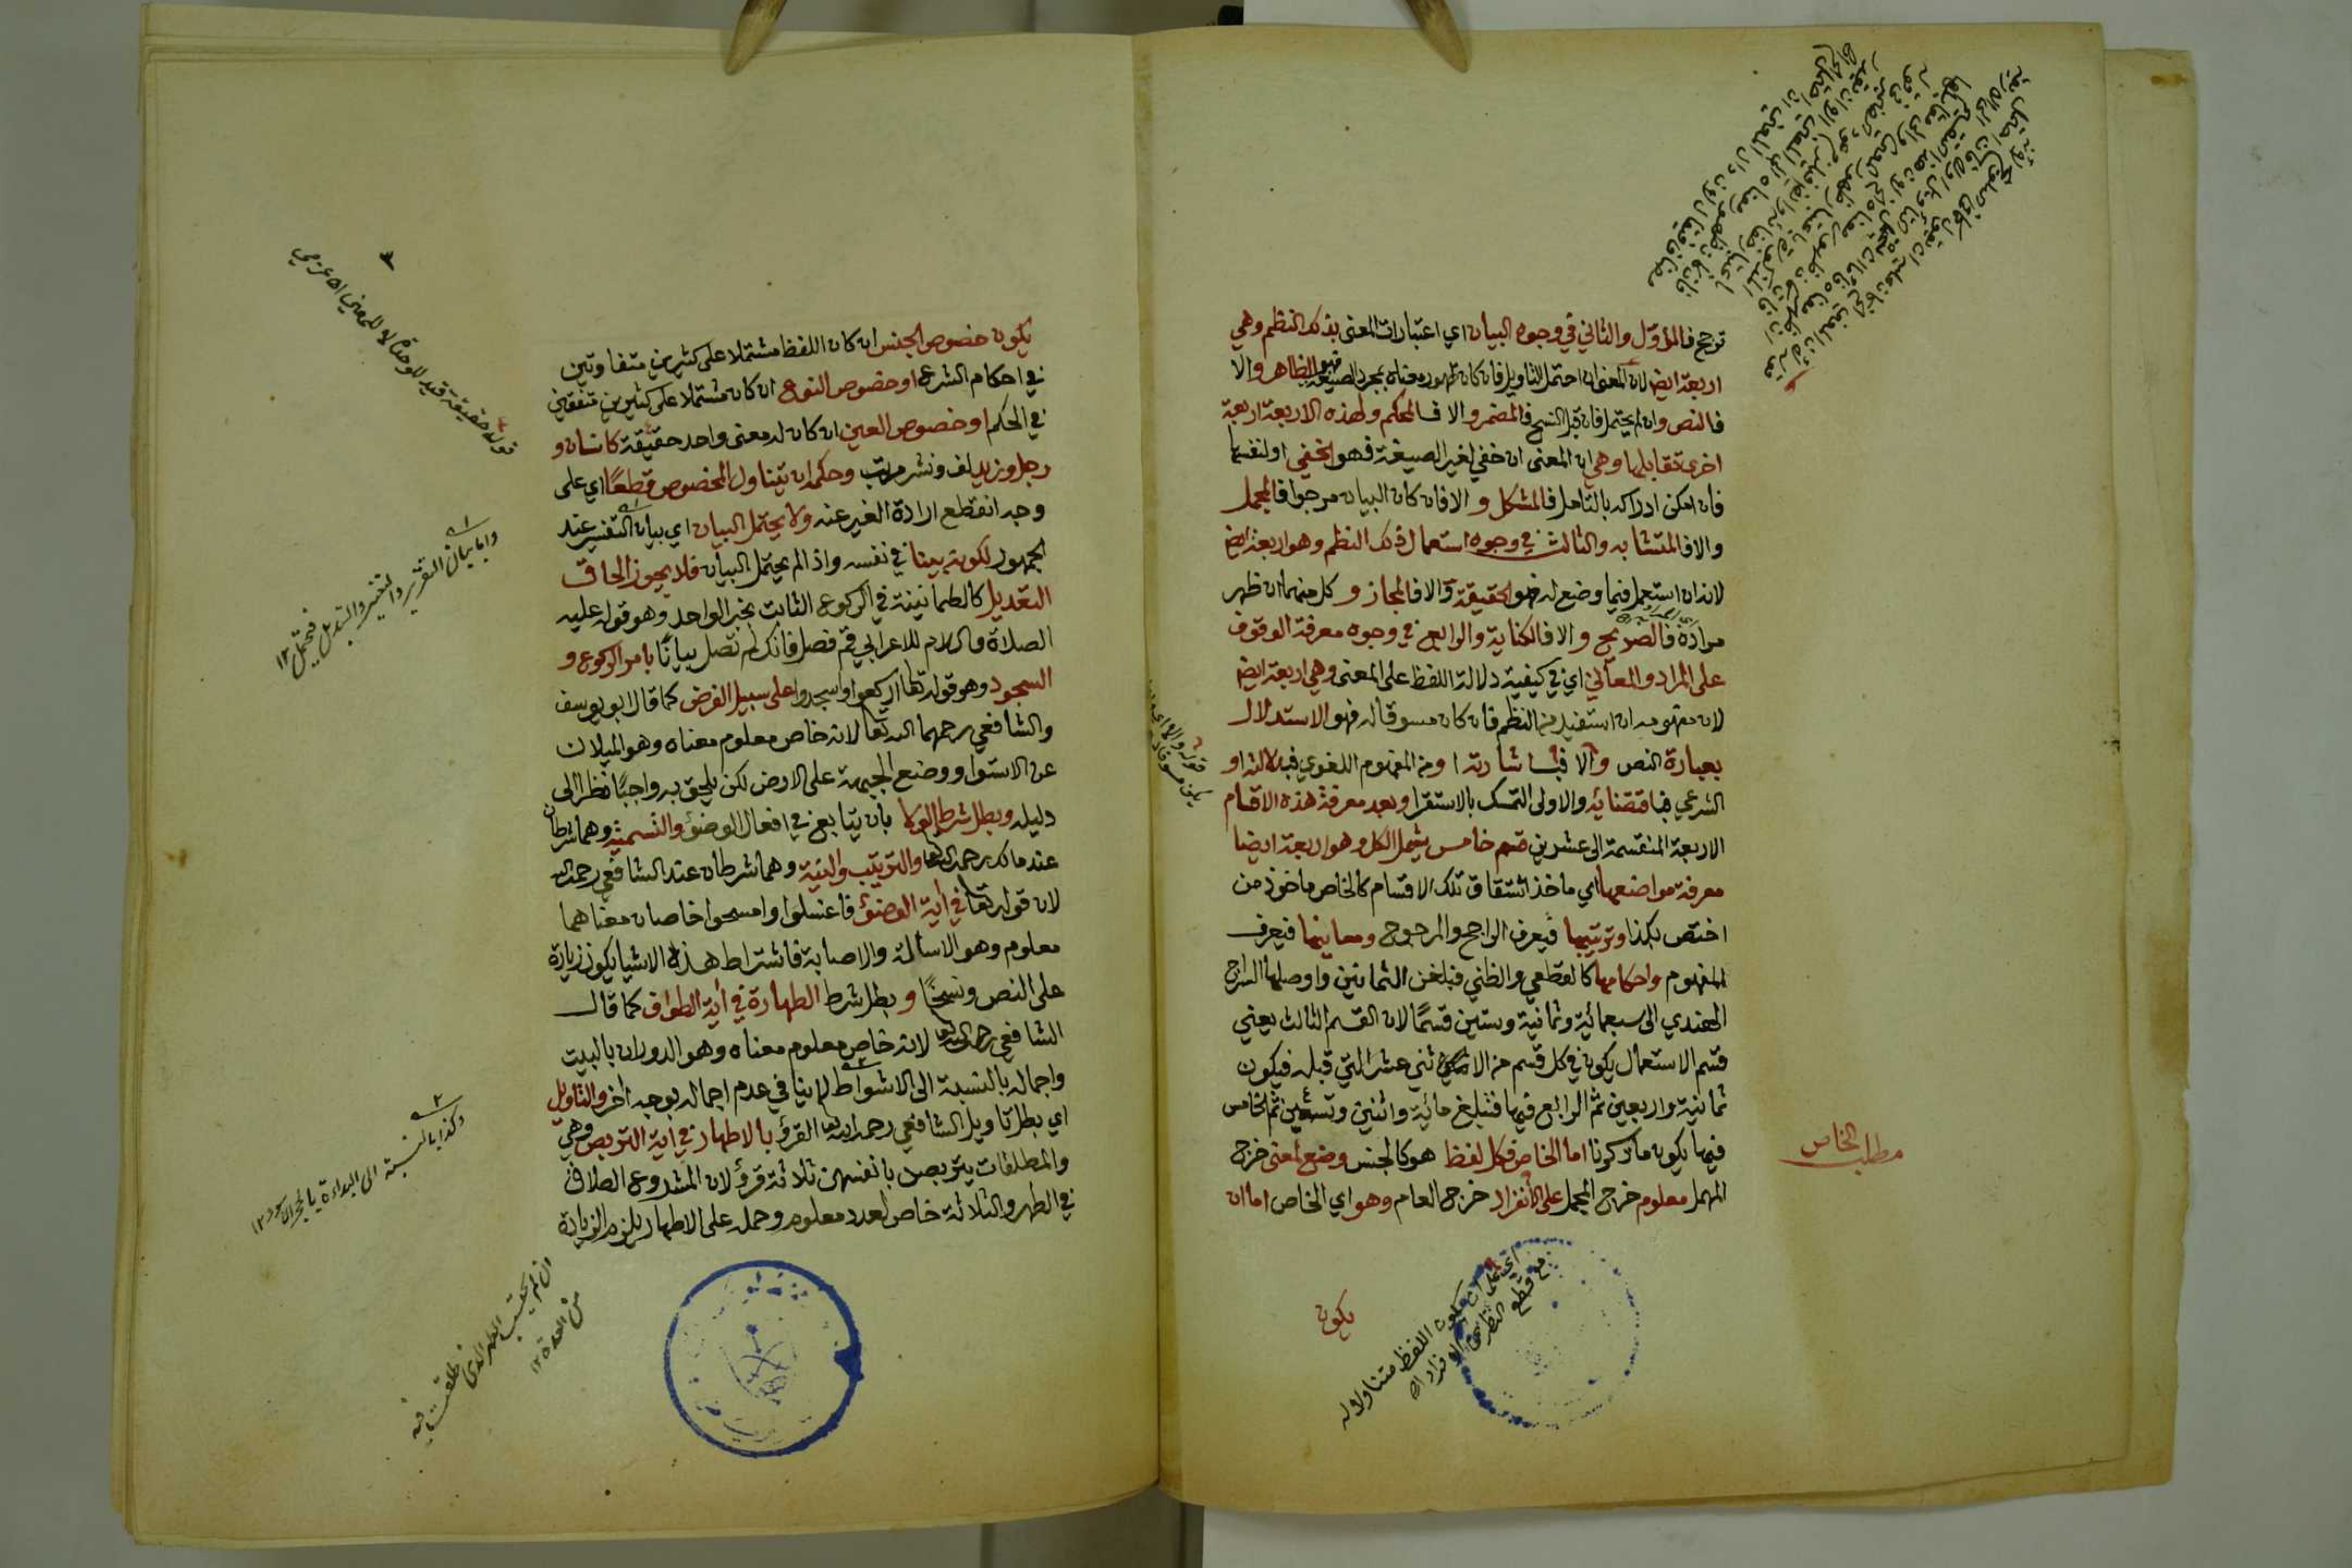 ترجح فالمؤول والثاني في وجوه البيان اي اعتبارات المعنى بذلك النظم وهي
اربعة ايض لان المعنى ان احتمل التاويل فان كان ظهور معناه بمجرد الصيغة فهو الظاهر والا
فالنص وان لم يحتمل فان قبل النسخ فالمفسر والا فالمحكم ولهذه الاربعة اربعة
اخرى تقابلها وهي ان المعنى ان خفي لغير الصيغة فهو الخفي او لنفسها
فان امكن ادراكه بالتامل فالمشكل والا فان كان البيان مرجوا فالمجمل
والا فالمتشابه والثالث في وجوه استعمال ذلك النظم وهو اربعة ايض
لانه ان استعمل فيما وضع له فهو الحقيقة والا فالمجاز وكل منهما ان ظهر
مراده فالصريح والا فالكناية والرابع في وجوه معرفة الوقوف
على المراد والمعاني اي في كيفية دلالة اللفظ على المعنى وهي اربعة ايض
لان مفهومه ان استفيد من النظم فان كان مسوقا له فهو الاستدلال
بعبارة النص والا فباشارته او من المفهوم اللغوي فبدلالته او
الشرعي فباقتضائه والاولى التمسك بالاستقرا وبعد معرفة هذه الاقسام
الاربعة المنقسمة الى عشرين قسم خامس يشمل الكل وهو اربعة ايضا
معرفة مواضعها اي ماخذ اشتقاق تلك الاقسام كالخاص ماخوذ من
اختص بكذا وترتيبها فيعرف الراجح والمرجوح ومعانيها فيعرف
المفهوم واحكامها كالقطعي والظني فبلغن الثمانين واوصلها السراج
الهندي الى سبعمائة وثمانية وستين قسمًا لان القسم الثالث يعني
قسم الاستعمال يكون في كل قسم من الاثني عشر التي قبله فيكون
ثمانية واربعين ثم الرابع فيها فتبلغ مائة واثنين وتسعين ثم الخامس
فيها يكون ما ذكرنا اما الخاص فكل لفظ هو كالجنس وضع لمعنى خرج
المهمل معلوم خرج المجمل على الانفراد خرج العام وهو اي الخاص اما ان
يكون
مطلب الخاص
اي على ان يكون اللفظ متناولا له
مع قطع النظر عن الافراد اه
يكون خصوص الجنس ان كان اللفظ مشتملا على كثيرين متفاوتين
في احكام الشرع او خصوص النوع ان كان مشتملا على كثيرين متفقين
في الحكم او خصوص العين ان كان له معنى واحد حقيقة كانسان و
رجل وزيد لف ونشر مرتب وحكمه ان يتناول المخصوص قطعًا اي على
وجه انقطع ارادة الغير عنه ولا يحتمل البيان اي بيان التفسير عند
الجمهور لكونه بينا في نفسه واذا لم يحتمل البيان فلا يجوز الحاق
التعديل كالطمانينة في الركوع الثابت بخبر الواحد وهو قوله عليه
الصلاة والسلام للاعرابي قم فصل فانك لم تصل بيانًا بامر الركوع و
السجود وهو قوله تعالى اركعوا واسجدوا على سبيل الفرض كما قال ابو يوسف
والشافعي رحمهما الله تعا لانه خاص معلوم معناه وهو الميلان
عن الاستوا ووضع الجبهة على الارض لكن يلحق به واجبًا نظرًا الى
دليله وبطل شرط الولا بان يتابع في افعال الوضوء والتسمية وهما شرطان
عند مالك رحمه الله تعا والترتيب والنية وهما شرطان عند الشافعي رحمه الله
لان قوله تعا في اية الوضوء فاغسلوا وامسحوا خاصان معناهما
معلوم وهو الاسالة والاصابة فاشتراط هذه الاشيا يكون زيادة
على النص ونسخًا و بطل شرط الطهارة في اية الطواف كما قال
الشافعي رحمه الله تعا لانه خاص معلوم معناه وهو الدوران بالبيت
واجماله بالنسبة الى الاشواط لا ينافي عدم اجماله بوجه اخر والتاويل
اي بطل تاويل الشافعي رحمه الله تعا القرؤ بالاطهار في اية التربص وهي
والمطلقات يتربصن بانفسهن ثلاثة قرؤ لان المشروع الطلاق
في الطهر والثلاثة خاص لعدد معلوم وحمله على الاطهار يلزم الزيادة
٣
قوله حقيقة قيد للوحدة لا للمعنى اه عزمي
واما بيان التقرير والتغيير والتبديل فيحتمل ١٢
وكذا بالنسبة الى البداءة بالحجر الاسود ١٢
ان لم يحتسب الطهر الذي طلقت فيه
من العدة ١٢